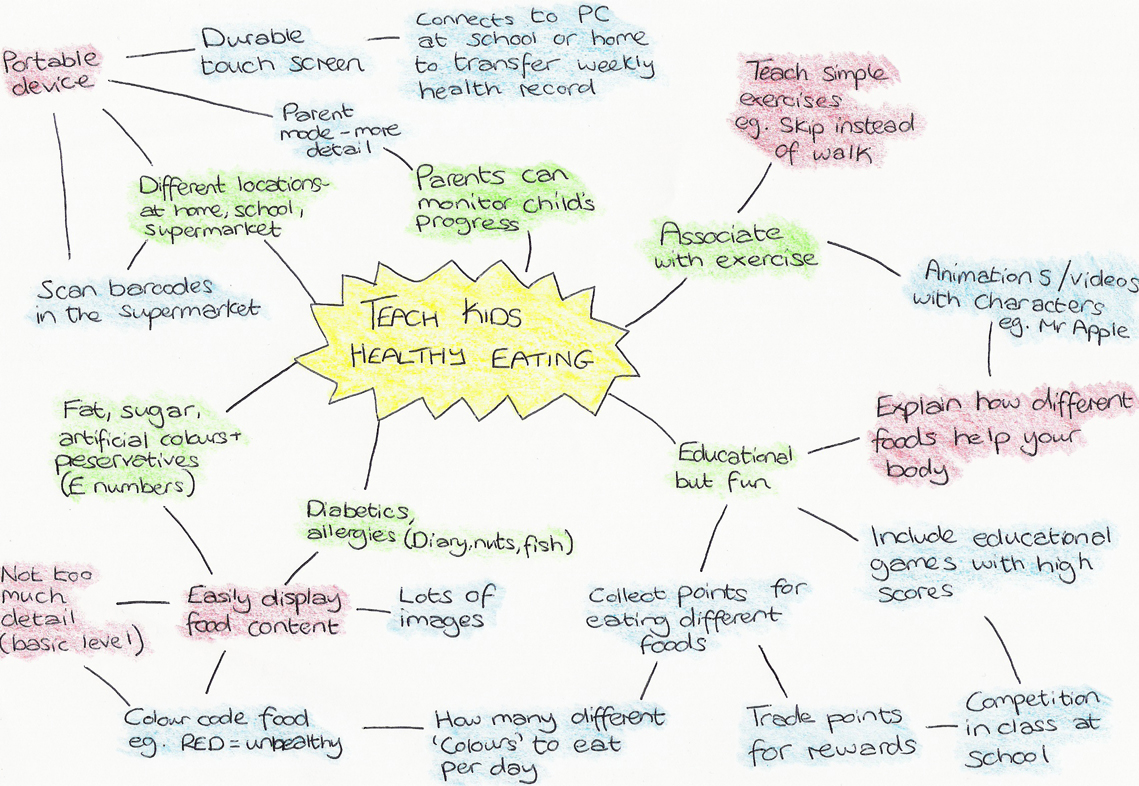 Portable
device
Durable
touch screen
Connects to PC
at school or home
to transfer weekly
health record
Parent
mode - more
detail
Parents can
monitor child's
progress
Different locations -
at home, school,
supermarket
Scan barcodes
in the supermarket
Teach simple
exercises
eg. Skip instead
of walk
Associate
with exercise
Animations/videos
with characters
eg. Mr Apple
TEACH KIDS
HEALTHY EATING
Fat, sugar,
artificial colours +
peservatives
(E numbers)
Diabetics,
allergies (Diary, nuts, fish)
Educational
but fun
Explain how different
foods help your
body
Include educational
games with high
scores
Not too
much
detail
(basic level)
Easily display
food content
Lots of
images
Collect points for
eating different
foods
Colour code food
eg. RED = unhealthy
How many different
'Colours' to eat
per day
Trade points
for rewards
Competition
in class at
school